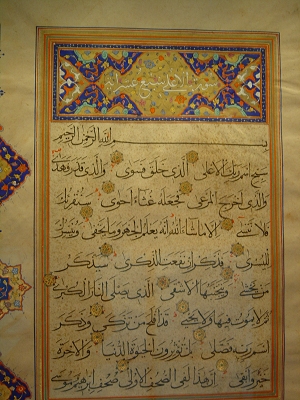 سورة الاعلى تسع عشر آية
بسم الله الرحمن الرحيم
سبح اسم ربك الاعلى الذي خلق فسوى والذي قدر فهدى
والذي اخرج المرعى فجعله غثاء احوى سنقرئك
فلا تنسى الا ماشاء الله انه يعلم الجهر وما يخفى ونيسرك
لليسرى فذكر ان نفعت الذكرى سيذكر
من يخشى ويتجنبها الاشقى الذي يصلى النار الكبرى
ثم لا يموت فيها ولا يحيى قد افلح من تزكى وذكر
اسم ربه فصلى بل تؤثرون الحيوة الدنيا والاخرة
خير وابقى ان هذا لفي الصحف الاولى صحف ابرهيم وموسى